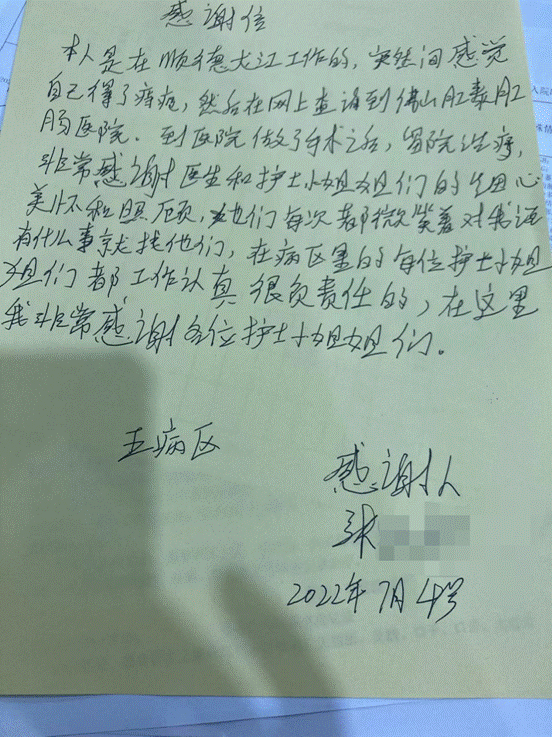 感谢信
本人是在顺德龙江工作的，突然间感觉
自己得了痔疮，然后在网上查询到佛山肛泰肛
肠医院。到医院做了手术之后，留院治疗，
非常感谢医生和护士小姐姐们的细心
关怀和照顾，她们每次都微笑着对我说
有什么事就找他们，在病区里的每位护士小姐
姐们都工作认真很负责任的，在这里
我非常感谢各位护士小姐姐们。
五病区
感谢人
张
2022年7月4号